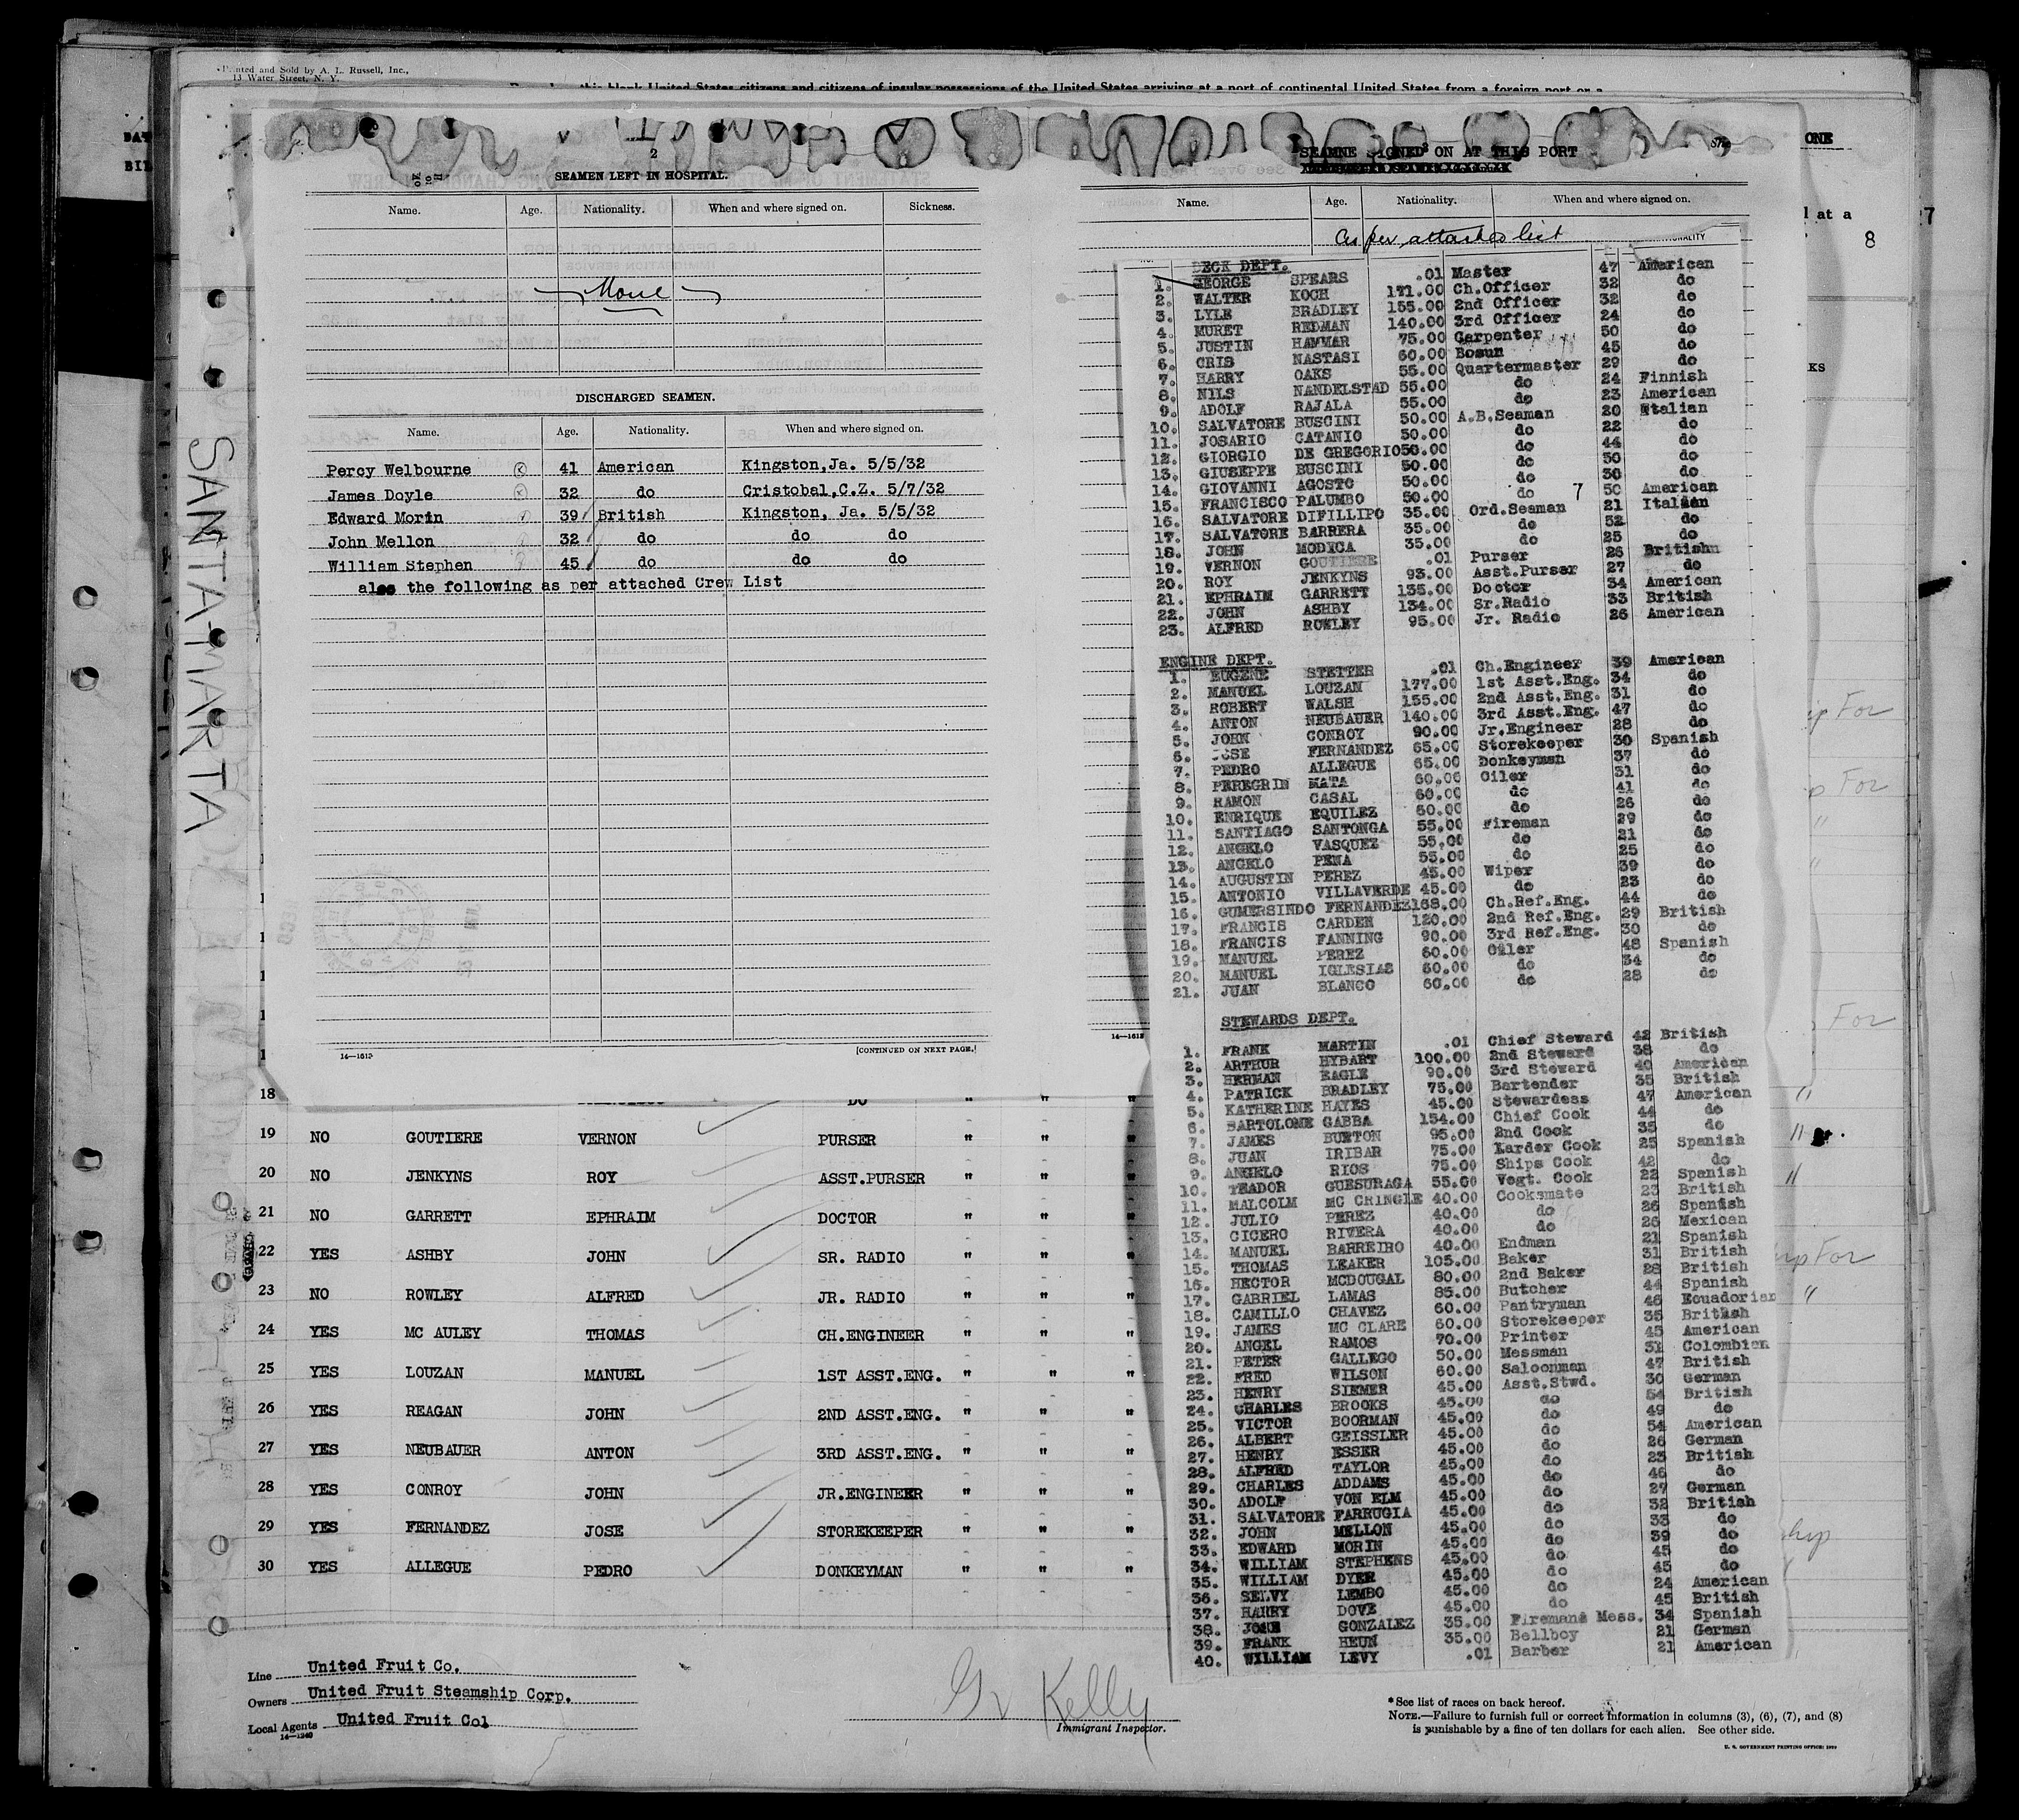 Printed and Sold by A. L. Russell, Inc.,
13 Water Street, N. Y.
this blank United States citizens and citizens of insular possessions of the United States arriving at a port of continental United States from a foreign port or a
ONE
l at a
7
8
KS
SANTA MARTA
2
SEAMEN LEFT IN HOSPITAL.
Name. Age. Nationality. When and where signed on. Sickness.
None
DISCHARGED SEAMEN.
Name. Age. Nationality. When and where signed on.
Percy Welbourne 41 American Kingston,Ja. 5/5/32
James Doyle 32 do Cristobal,C.Z. 5/7/32
Edward Morin 39 British Kingston, Ja. 5/5/32
John Mellon 32 do do do
William Stephen 45 do do do
also the following as per attached Crew List
14—1613 [CONTINUED ON NEXT PAGE.]
3
SEAMNE SIGNED ON AT THIS PORT
Name. Age. Nationality. When and where signed on.
as per attached list
DECK DEPT.
1. GEORGE SPEARS .01 Master 47 American
2. WALTER KOCH 171.00 Ch.Officer 32 do
3. LYLE BRADLEY 155.00 2nd Officer 32 do
4. MURET REDMAN 140.00 3rd Officer 24 do
5. JUSTIN HAMMAR 75.00 Carpenter 50 do
6. CRIS NASTASI 60.00 Bosun 45 do
7. HARRY OAKS 55.00 Quartermaster 29 do
8. NILS NANDELSTAD 55.00 do 24 Finnish
9. ADOLF RAJALA 55.00 do 23 American
10. SALVATORE BUSCINI 50.00 A.B.Seaman 20 Italian
11. JOSARIO CATANIO 50.00 do 22 do
12. GIORGIO DE GREGORIO 50.00 do 44 do
13. GIUSEPPE BUSCINI 50.00 do 50 do
14. GIOVANNI AGOSTO 50.00 do 30 do
15. FRANCISCO PALUMBO 50.00 do 7 50 American
16. SALVATORE DIFILLIPO 35.00 Ord.Seaman 21 Italian
17. SALVATORE BARRERA 35.00 do 52 do
18. JOHN MODICA 35.00 do 25 do
19. VERNON GOUTIERE .01 Purser 26 British
20. ROY JENKYNS 93.00 Asst.Purser 27 do
21. EPHRAIM GARRETT 135.00 Doctor 34 American
22. JOHN ASHBY 134.00 Sr.Radio 33 British
23. ALFRED ROWLEY 95.00 Jr. Radio 26 American
ENGINE DEPT.
1. EUGENE STETTER .01 Ch.Engineer 39 American
2. MANUEL LOUZAN 177.00 1st Asst.Eng. 34 do
3. ROBERT WALSH 155.00 2nd Asst.Eng. 31 do
4. ANTON NEUBAUER 140.00 3rd Asst.Eng. 47 do
5. JOHN CONROY 90.00 Jr.Engineer 28 do
6. JOSE FERNANDEZ 65.00 Storekeeper 30 Spanish
7. PEDRO ALLEGUE 65.00 Donkeyman 37 do
8. PEREGRIN MATA 60.00 Oiler 31 do
9. RAMON CASAL 60.00 do 41 do
10. ENRIQUE EQUILEZ 60.00 do 26 do
11. SANTIAGO SANTONGA 55.00 Fireman 29 do
12. ANGELO VASQUEZ 55.00 do 21 do
13. ANGELO PENA 55.00 do 25 do
14. AUGUSTIN PEREZ 45.00 Wiper 39 do
15. ANTONIO VILLAVERDE 45.00 do 23 do
16. GUMERSINDO FERNANDEZ 168.00 Ch.Ref.Eng. 44 do
17. FRANCIS CARDEN 120.00 2nd Ref.Eng. 29 British
18. FRANCIS FANNING 90.00 3rd Ref.Eng. 30 do
19. MANUEL PEREZ 60.00 Oiler 48 Spanish
20. MANUEL IGLESIAS 60.00 do 34 do
21. JUAN BLANCO 60.00 do 28 do
STEWARDS DEPT.
1. FRANK MARTIN .01 Chief Steward 42 British
2. ARTHUR HYBART 100.00 2nd Steward 38 do
3. HERMAN EAGLE 90.00 3rd Steward 40 American
4. PATRICK BRADLEY 75.00 Bartender 35 British
5. KATHERINE HAYES 45.00 Stewardess 47 American
6. BARTOLOME GABBA 154.00 Chief Cook 44 do
7. JAMES BURTON 95.00 2nd Cook 35 do
8. JUAN IRIBAR 75.00 Larder Cook 25 Spanish
9. ANGELO RIOS 75.00 Ships Cook 42 do
10. TEADOR GUESURAGA 55.00 Vegt. Cook 22 Spanish
11. MALCOLM MC CRINGLE 40.00 Cooksmate 23 British
12. JULIO PEREZ 40.00 do 26 Spanish
13. CICERO RIVERA 40.00 do 26 Mexican
14. MANUEL BARREIRO 40.00 Endman 21 Spanish
15. THOMAS LEAKER 105.00 Baker 31 British
16. HECTOR MCDOUGAL 80.00 2nd Baker 28 British
17. GABRIEL LAMAS 85.00 Butcher 44 Spanish
18. CAMILLO CHAVEZ 60.00 Pantryman 46 Ecuadorian
19. JAMES MC CLARE 60.00 Storekeeper 35 British
20. ANGEL RAMOS 70.00 Printer 45 American
21. PETER GALLEGO 50.00 Messman 31 Colombien
22. FRED WILSON 60.00 Saloonman 47 British
23. HENRY SIEMER 45.00 Asst.Stwd. 30 German
24. CHARLES BROOKS 45.00 do 54 British
25. VICTOR BOORMAN 45.00 do 49 do
26. ALBERT GEISSLER 45.00 do 54 American
27. HENRY ESSER 45.00 do 26 German
28. ALFRED TAYLOR 45.00 do 23 British
29. CHARLES ADDAMS 45.00 do 46 do
30. ADOLF VON ELM 45.00 do 27 German
31. SALVATORE FARRUGIA 45.00 do 32 British
32. JOHN MELLON 45.00 do 33 do
33. EDWARD MORIN 45.00 do 39 do
34. WILLIAM STEPHENS 45.00 do 45 do
35. WILLIAM DYER 45.00 do 45 do
36. SELVY LEMBO 45.00 do 24 American
37. HARRY DOVE 45.00 do 45 British
38. JOSE GONZALEZ 35.00 Firemans Mess. 34 Spanish
39. FRANK HEUN 35.00 Bellboy 21 German
40. WILLIAM LEVY .01 Barber 21 American
18 DO " " "
19 NO GOUTIERE VERNON PURSER " " "
20 NO JENKYNS ROY ASST.PURSER " " "
21 NO GARRETT EPHRAIM DOCTOR " " "
22 YES ASHBY JOHN SR. RADIO " " "
23 NO ROWLEY ALFRED JR. RADIO " " "
24 YES MC AULEY THOMAS CH.ENGINEER " " "
25 YES LOUZAN MANUEL 1ST ASST.ENG. " " "
26 YES REAGAN JOHN 2ND ASST.ENG. " " "
27 YES NEUBAUER ANTON 3RD ASST.ENG. " " "
28 YES CONROY JOHN JR.ENGINEER " " "
29 YES FERNANDEZ JOSE STOREKEEPER " " "
30 YES ALLEGUE PEDRO DONKEYMAN " " "
Line United Fruit Co.
Owners United Fruit Steamship Corp.
Local Agents United Fruit Col
14—1240
Kelly
Immigrant Inspector.
*See list of races on back hereof.
NOTE.—Failure to furnish full or correct information in columns (3), (6), (7), and (8)
is punishable by a fine of ten dollars for each alien. See other side.
U. S. GOVERNMENT PRINTING OFFICE: 1929